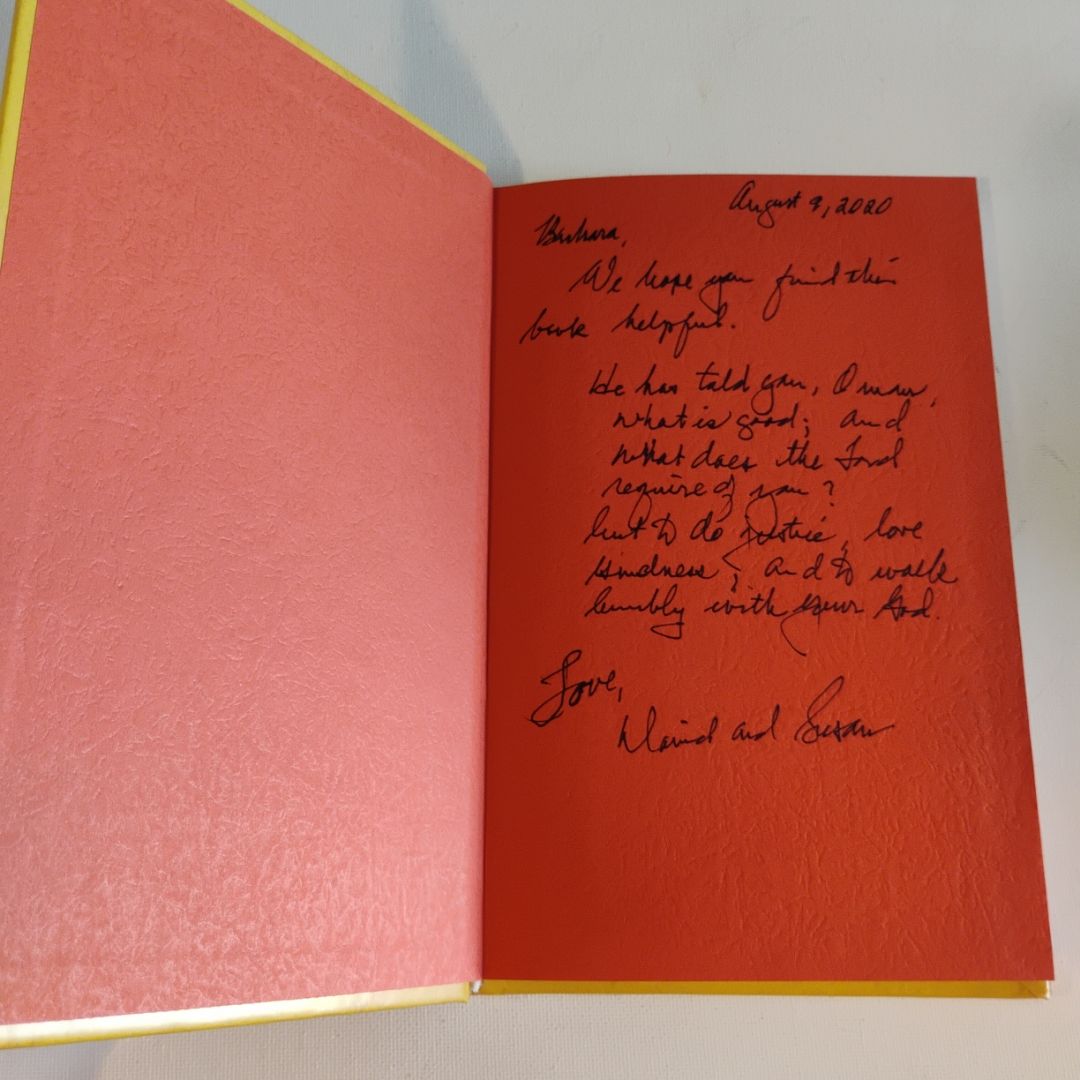 August 9, 2020
Barbara,
We hope you find this
book helpful.
He has told you, O man,
what is good; and
what does the Lord
require of you?
but to do justice, love
kindness, and to walk
humbly with your God.
Love,
David and Susan